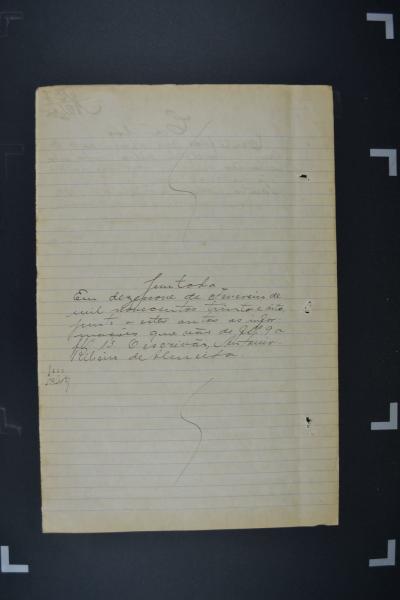 Juntada
Em dezenove de Fevereiro de
mil novecentos trinta e oito
junto a estes autos as infor
mações que vão de fls 9 a
fls O escrivão, Antonio
Ribeiro de Almeida